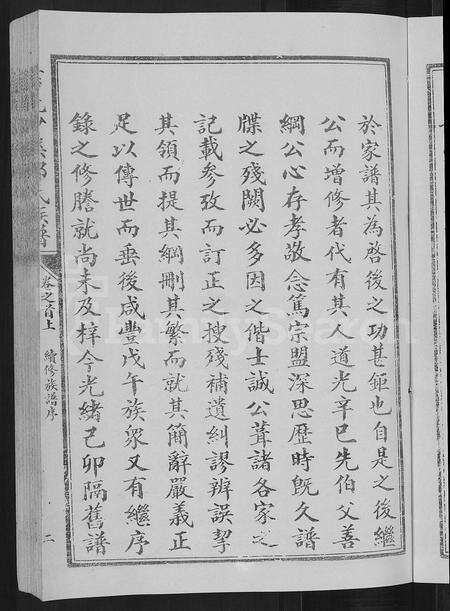 於家譜其為啓後之功甚鉅也自是之後繼
公而增修者代有其人道光辛巳先伯父善
綱公心存孝敬念篤宗盟深思歷時既久譜
牒之殘闕必多因之偕士誠公葺諸各家之
記載參攷而訂正之搜殘補遺糾謬辨誤挈
其領而提其綱刪其繁而就其簡辭嚴義正
足以傳世而垂後咸豐戊午族眾又有繼序
錄之修謄就尚未及梓今光緒己卯隔舊譜
卷之首上
續修族譜序
二